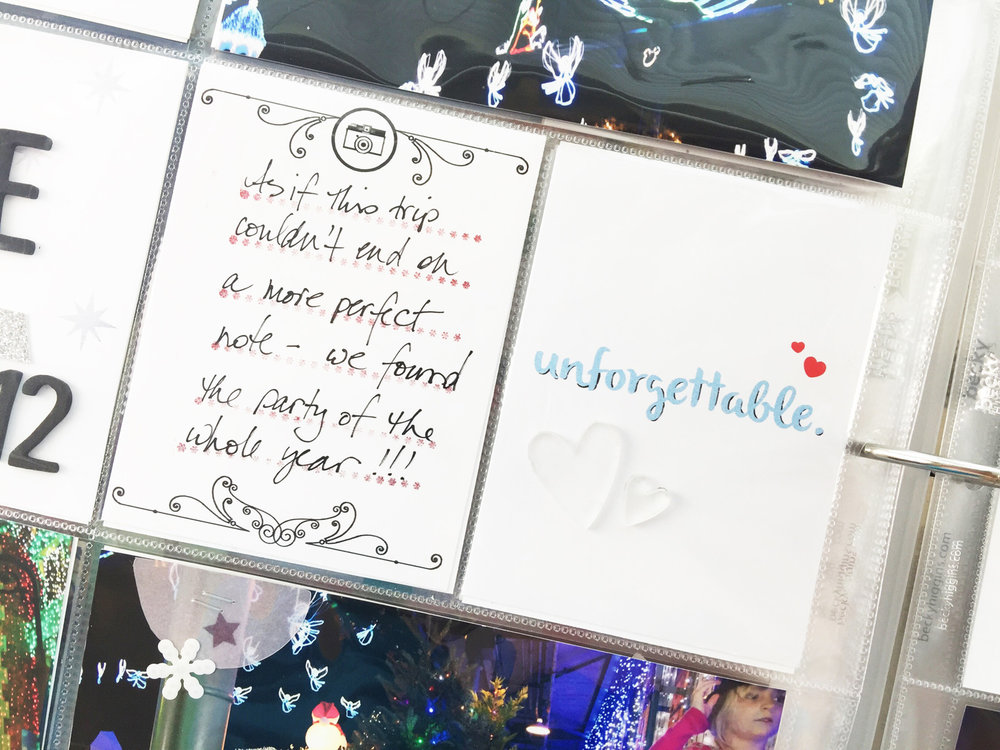 E
12
As if this trip
couldn't end on
a more perfect
note - we found
the party of the
whole year!!!
unforgettable.
beckyhiggins.com